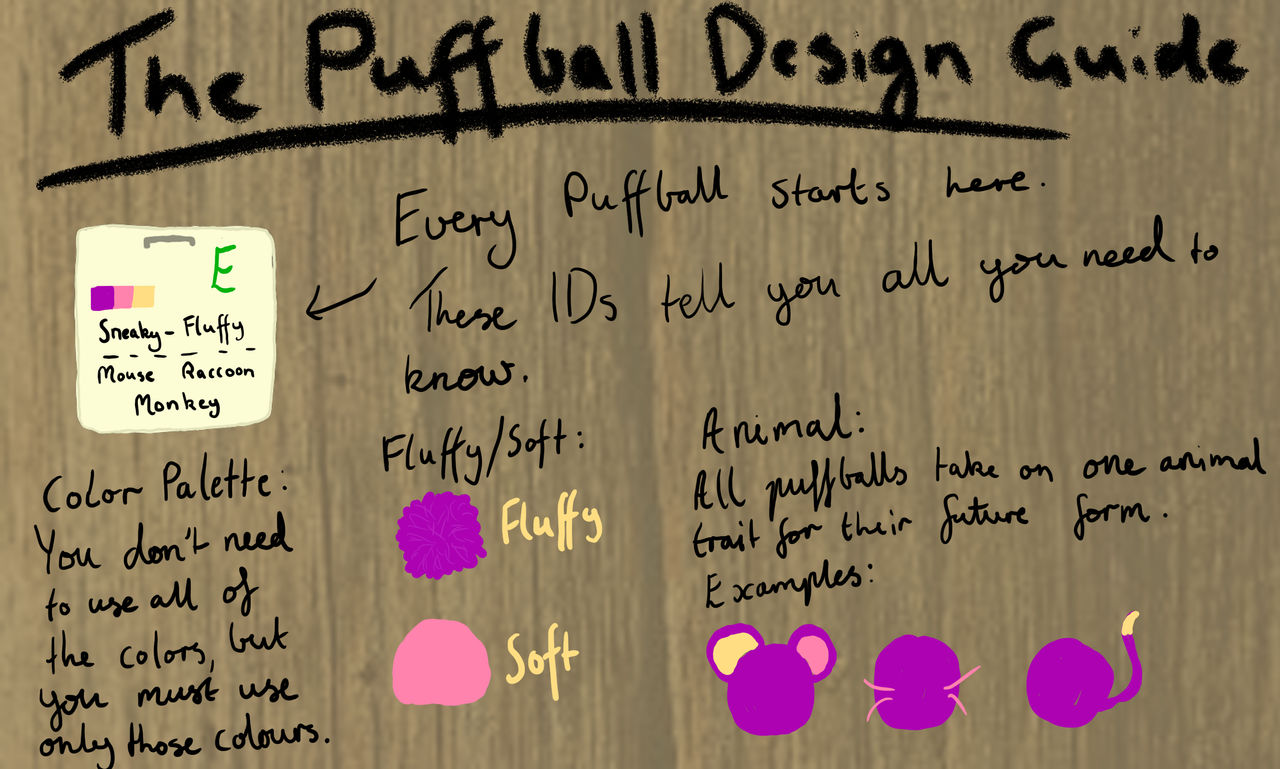 The Puffball Design Guide
Every Puffball starts here.
These IDs tell you all you need to
know.
E
Sneaky - Fluffy
Mouse Raccoon
Monkey
Color Palette:
You don't need
to use all of
the colors, but
you must use
only those colours.
Fluffy/Soft:
Fluffy
Soft
Animal:
All puffballs take on one animal
trait for their future form.
Examples: